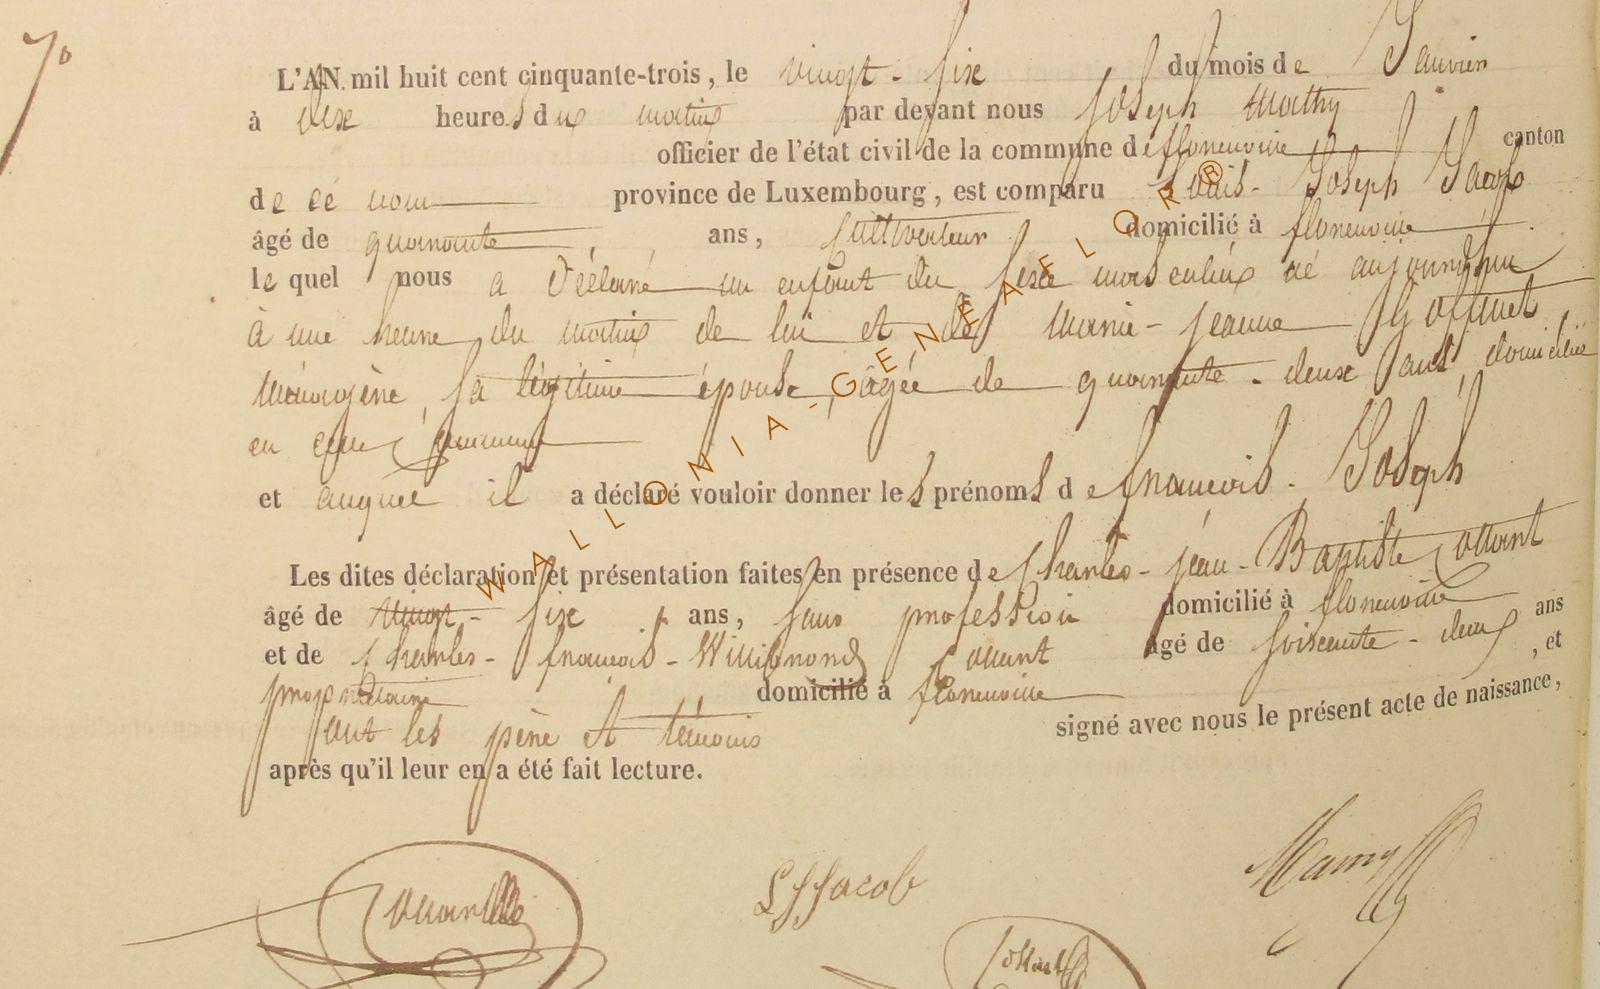 7°
L'AN mil huit cent cinquante-trois, le vingt-six du mois de Janvier
à dix heures du matin par devant nous Joseph Mathy
officier de l'état civil de la commune de florenville canton
de cé nom province de Luxembourg, est comparu Louis-Joseph Jacob
âgé de quarante ans, Cultivateur domicilié à florenville
le quel nous a Déclaré un enfant du sexe masculin né aujourd'hui
à une heure du matin de lui et de Marie-jeanne Goffinet,
Ménagère, sa légitime épouse, âgée de quarante-deux ans, domiciliée
en cette Commune
et auquel il a déclaré vouloir donner les prénoms de francois-Joseph
Les dites déclaration et présentation faites en présence de Charles-jean-Baptiste Ottant
âgé de vingt-six ans, sans profession domicilié à florenville ans
et de Charles-francois-Willibrord Ottant âgé de soixante-deux, et
propriétaire domicilié à florenville
ont les père et témoins signé avec nous le présent acte de naissance,
après qu'il leur en a été fait lecture.
LJJacob
WALLONIA-GENEAELOR®